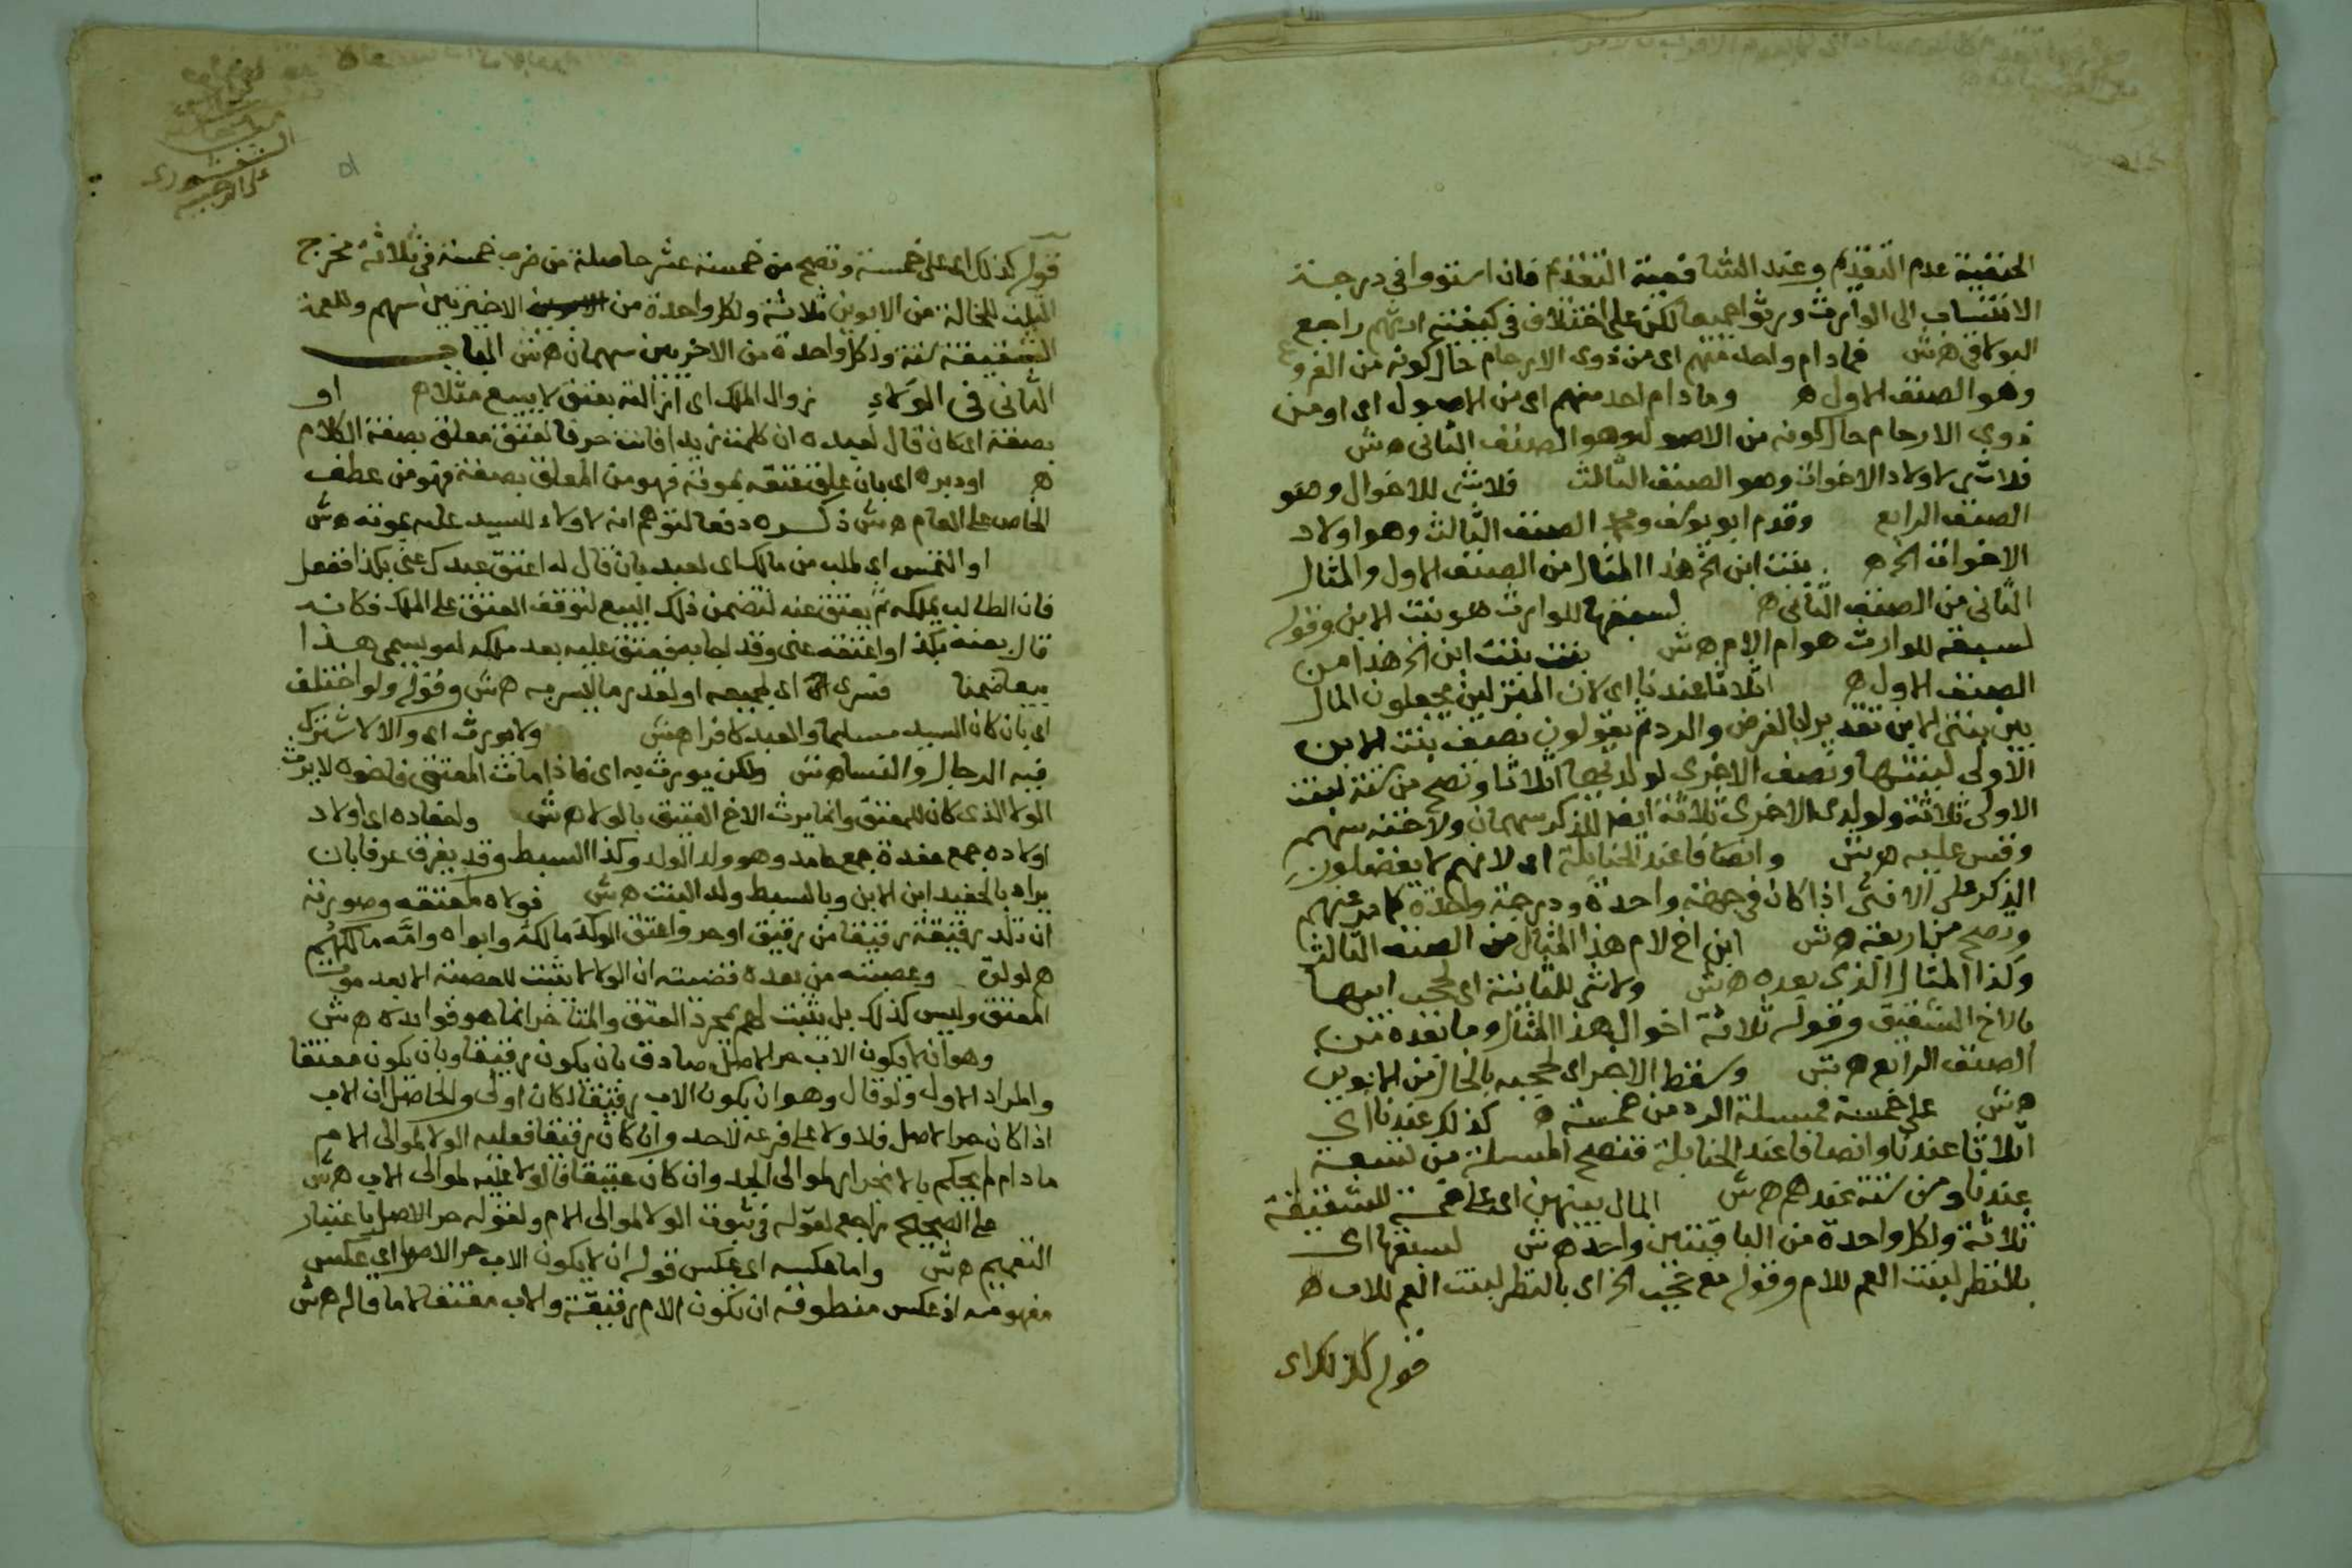 الحنفية عدم التقديم وعند الشافعية التقدم فان استووا في درجة
الانتساب الى الوارث ورثوا جميعا لكن على اختلاف في كيفية ارثهم راجع
البولاقي هش فمادام واحد منهم اى من ذوى الارحام حال كونه من الفروع
وهو الصنف الاول ه وما دام احد منهم اى من الاصول اى او من
ذوي الارحام حال كونه من الاصول وهو الصنف الثانى هش
فلاشى لاولاد الاخوات وهو الصنف الثالث فلاشى للاخوال وهو
الصنف الرابع وقدم ابو يوسف ومحمد الصنف الثالث وهو اولاد
الاخوات الخ ه بنت ابن الخ هذا المثال من الصنف الاول والمثال
الثانى من الصنف الثانى ه لسبقها للوارث هو بنت الابن وقوله
لسبقه للوارث هو ام الام هش بنت بنت ابن الخ هذا من
الصنف الاول ه اثلاثا عندنا اى لان المنزلين يجعلون المال
بين بنتى الابن تقديرا بالفرض والرد ثم يقولون نصف بنت الابن
الاولى لبنتها ونصف الاخرى لولديها اثلاثا وتصح من ستة لبنت
الاولى ثلاثة ولولدى الاخرى ثلاثة ايضا للذكر سهمان ولاخته سهم
وقس عليه هش وانصافا عند الحنابلة اى لانهم لا يفضلون
الذكر على الانثى اذا كان في جهة واحدة ودرجة واحدة كما مر عنهم
وتصح من اربعة هش ابن اخ لام هذا المثال من الصنف الثالث
وكذا المثال الذى بعده هش ولاشى للثانية اى لحجب ابيها
بالاخ الشقيق وقوله ثلاثة اخوال هذا المثال وما بعده من
الصنف الرابع هش وسقط الاخر اى لحجبه بالخال من الابوين
هش على خمسة فمسئلة الرد من خمسة ه كذلك عندنا اى
اثلاثا عندنا وانصافا عند الحنابلة فتصح المسئلة من تسعة
عندنا ومن ستة عندهم هش المال بينهن اى على خمسة للشقيقة
ثلاثة ولكل واحدة من الباقيتين واحد هش لسبقها اى
بالنظر لبنت العم للام وقوله مع حجب الخ اى بالنظر لبنت العم للاب ه
قوله كذلك اى
قوله كذلك اى على خمسة وتصح من خمسة عشر حاصلة من ضرب خمسة في ثلاثة مخرج
الثلث للخالة من الابوين ثلاثة ولكل واحدة من الاخيرتين سهم وللعمة
الشقيقة ستة ولكل واحدة من الاخريين سهمان هش الباب
الثانى في الولاء زوال الملك اى ازالته بعتق لا ببيع مثلا ه او
بصفة اى كان قال لعبده ان كلمت زيدا فانت حر فالعتق معلق بصفة الكلام
ه او دبره اى بان علق عتقه بموته فهو من المعلق بصفة فهو من عطف
الخاص على العام هش ذكره دفعا لتوهم انه لا ولاء للسيد عليه بموته هش
او التمس اى طلب من مالك اى لعبد بان قال له اعتق عبدك عنى بكذا ففعل
فان الطالب يملكه ثم يعتق عنه لتضمن ذلك البيع لتوقف العتق على الملك فكانه
قال بعنيه بكذا او اعتقه عنى وقد اجابه فيعتق عليه بعد ملكه له ويسمى هذا
بيعا ضمنيا فسرى اى لجميعه او لقدر ما ايسر به هش وقوله ولو اختلف
اى بان كان السيد مسلما والعبد كافرا هش ولا يورث اى والا لاشترك
فيه الرجال والنسا هش ولكن يورث به اى فاذا مات المعتق فاخوه لا يرث
الولا الذى كان للمعتق وانما يرث الاخ العتيق بالولا هش واحفاده اى اولاد
اولاده جمع حفدة جمع حافد وهو ولد الولد وكذا السبط وقد يفرق عرفا بان
يراد بالحفيد ابن الابن وبالسبط ولد البنت هش فولاه لمعتقه وصورته
ان تلد رقيقة رقيقا من رقيق او حر واعتق الولد مالكه وابواه وامه مالكهم
ه لولوى وعصبته من بعده قضيته ان الولا لا يثبت للعصبة الا بعد موت
المعتق وليس كذلك بل يثبت لهم بمجرد العتق والمتاخر انما هو فوايده هش
وهو ان لا يكون الاب حر الاصل صادق بان يكون رقيقا وبان يكون معتقا
والمراد الاول ولو قال وهو ان يكون الاب رقيقا لكان اولى والحاصل ان الاب
اذا كان حر الاصل فلا ولا على فرعه لاحد وان كان رقيقا فعليه الولا لموالى الام
ما دام لم يحكم بالانجرار لموالى الجد وان كان عتيقا فالولا عليه لموالى الاب هش
على الصحيح راجع لقوله في ثبوت الولا لموالى الام ولقوله حر الاصل باعتبار
التعميم هش واما عكسه اى عكس قوله ان لا يكون الاب حر الاصل اى عكس
مفهومه اذ عكس منطوقه ان تكون الام رقيقة والاب معتقا لا ما قاله هش